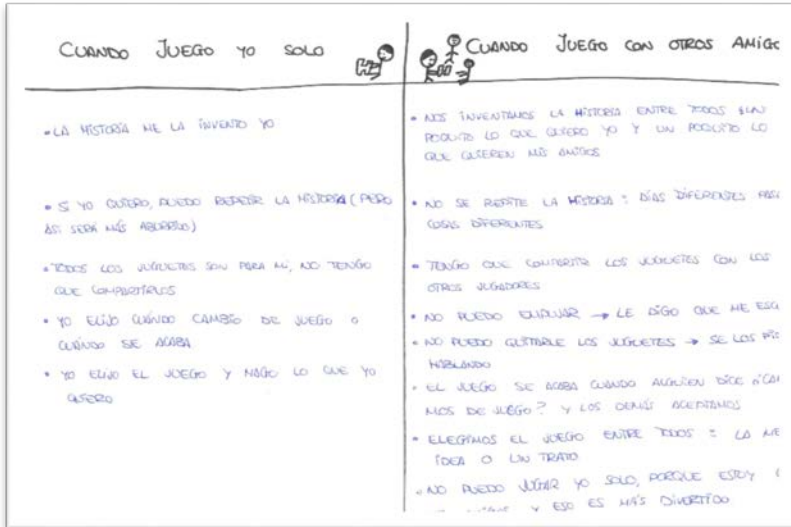 CUANDO JUEGO YO SOLO
• LA HISTORIA ME LA INVENTO YO
• SI YO QUIERO, PUEDO REPETIR LA HISTORIA (PERO
ASÍ SERÁ MÁS ABURRIDO)
• TODOS LOS JUGUETES SON PARA MI, NO TENGO
QUE COMPARTIRLOS
• YO ELIJO CUÁNDO CAMBIO DE JUEGO O
CUÁNDO SE ACABA
• YO ELIJO EL JUEGO Y HAGO LO QUE YO
QUIERO
CUANDO JUEGO CON OTROS AMIGO
• NOS INVENTAMOS LA HISTORIA ENTRE TODOS
POQUITO LO QUE QUIERO YO Y UN POQUITO LO
QUE QUIEREN MIS AMIGOS
• NO SE REPITE LA HISTORIA : DÍAS DIFERENTES
COSAS DIFERENTES
• TENGO QUE COMPARTIR LOS JUGUETES CON LOS
OTROS JUGADORES
• NO PUEDO EMPUJAR → LE DIGO QUE ME
• NO PUEDO QUITARLE LOS JUGUETES → SE LOS
HABLANDO
• EL JUEGO SE ACABA CUANDO ALGUIEN DICE
MOS DE JUEGO? Y LOS DEMÁS ACEPTAMOS
• ELEGIMOS EL JUEGO ENTRE TODOS : LA
IDEA O UN TRATO
• NO PUEDO JUGAR YO SOLO, PORQUE ESTOY
Y ESO ES MÁS DIVERTIDO